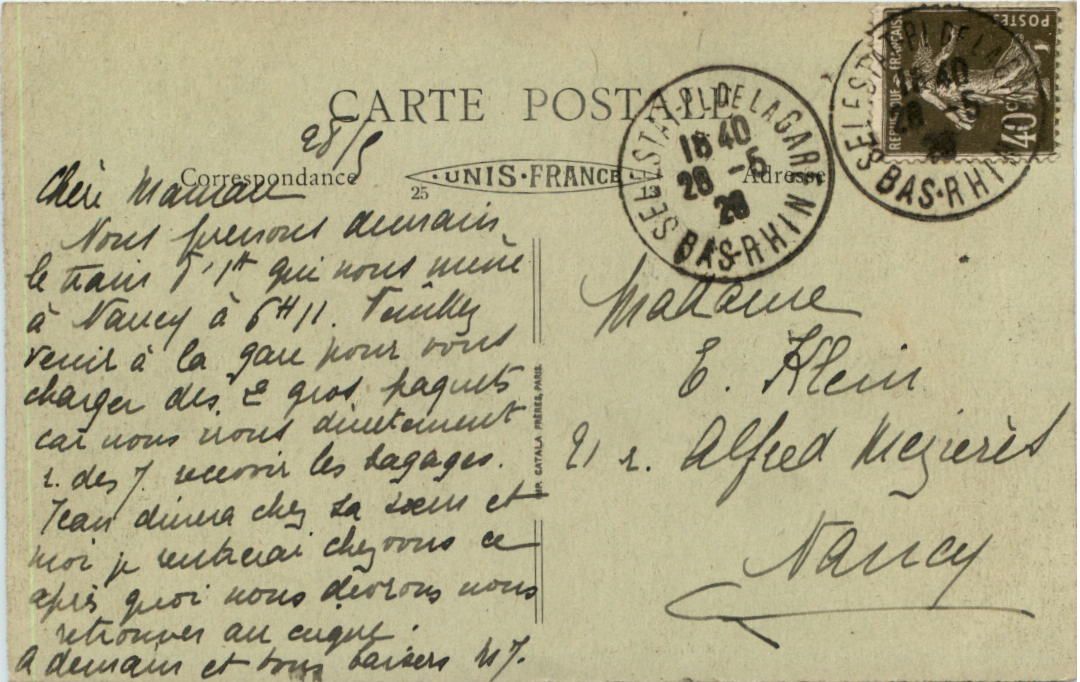 CARTE POSTALE
Correspondance
UNIS-FRANCE
25
13
Adresse
SELESTAT-PL. DE LA GARE
18 40
28 -5
28
BAS-RHIN
SELESTAT-PL. DE LA GARE
18 40
28 -5
28
BAS-RHIN
REPUBLIQUE FRANÇAISE
POSTES
40c
28/5
Chère Maman
Nous prenons demain
le train qui nous mène
à Nancy à 6H11. Veuillez
venir à la gare pour vous
charger des 2 gros paquets
car nous irons directement
r. des J. recevoir les bagages.
Jean dinera chez sa sœur et
moi je rentrerai chez vous ce
après quoi nous devrons nous
retrouver au cirque.
A demain et bons baisers
IMP. CATALA FRÈRES, PARIS
Madame
E. Klein
21 r. Alfred Mezières
Nancy